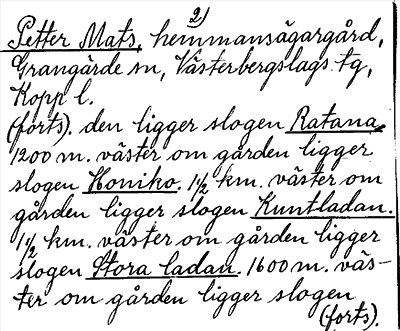 2)
Petter Mats, hemmansägargård,
Grangärde sn, Västerbergslags tg,
Kopp l.
(forts). den ligger slogen Ratana.
1200 m. väster om gården ligger
slogen Honiko. 1 1/2 km. väster om
gården ligger slogen Kuntladan.
1 1/2 km. väster om gården ligger
slogen Stora ladan. 1600 m. väs-
ter om gården ligger slogen
(forts).